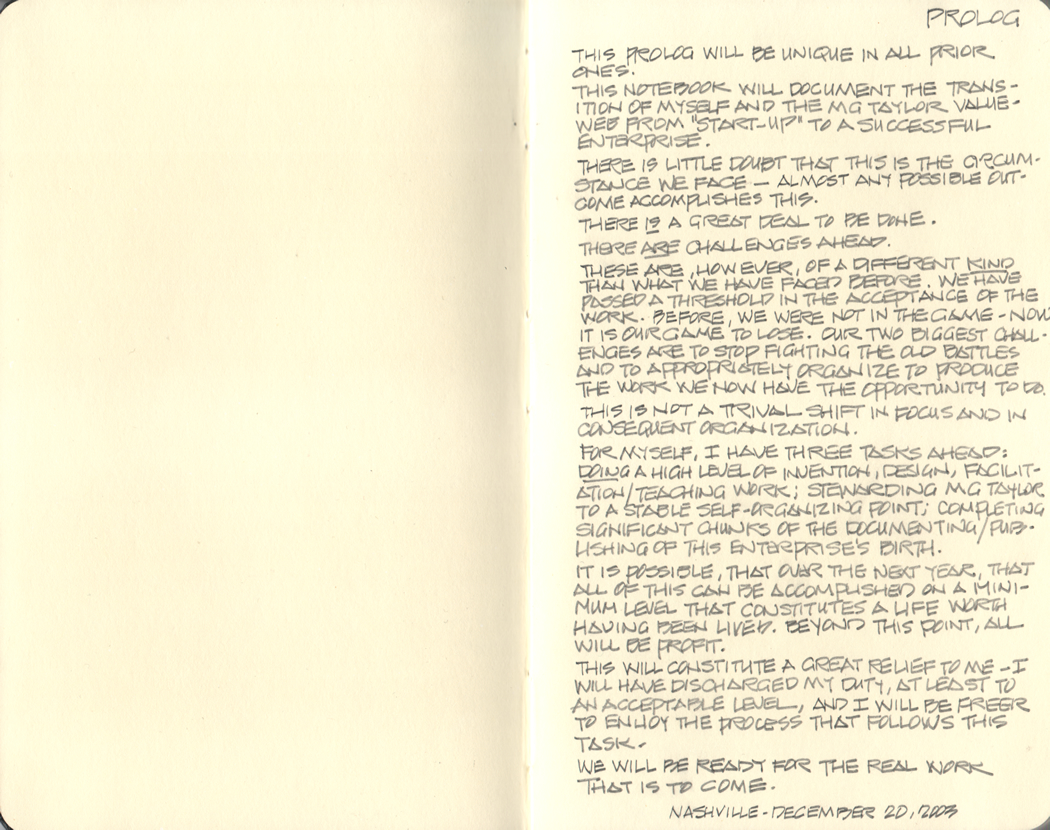 PROLOG
THIS PROLOG WILL BE UNIQUE IN ALL PRIOR
ONES.
THIS NOTEBOOK WILL DOCUMENT THE TRANS-
ITION OF MYSELF AND THE MG TAYLOR VALUE-
WEB FROM "START-UP" TO A SUCCESSFUL
ENTERPRISE.
THERE IS LITTLE DOUBT THAT THIS IS THE CIRCUM-
STANCE WE FACE – ALMOST ANY POSSIBLE OUT-
COME ACCOMPLISHES THIS.
THERE IS A GREAT DEAL TO BE DONE.
THERE ARE CHALLENGES AHEAD.
THESE ARE, HOWEVER, OF A DIFFERENT KIND
THAN WHAT WE HAVE FACED BEFORE. WE HAVE
PASSED A THRESHOLD IN THE ACCEPTANCE OF THE
WORK. BEFORE, WE WERE NOT IN THE GAME - NOW
IT IS OUR GAME TO LOSE. OUR TWO BIGGEST CHALL-
ENGES ARE TO STOP FIGHTING THE OLD BATTLES
AND TO APPROPRIATELY ORGANIZE TO PRODUCE
THE WORK WE NOW HAVE THE OPPORTUNITY TO DO.
THIS IS NOT A TRIVAL SHIFT IN FOCUS AND IN
CONSEQUENT ORGANIZATION.
FOR MYSELF, I HAVE THREE TASKS AHEAD:
DOING A HIGH LEVEL OF INVENTION, DESIGN, FACILIT-
ATION/TEACHING WORK; STEWARDING MG TAYLOR
TO A STABLE SELF-ORGANIZING POINT; COMPLETING
SIGNIFICANT CHUNKS OF THE DOCUMENTING/PUB-
LISHING OF THIS ENTERPRISE'S BIRTH.
IT IS POSSIBLE, THAT OVER THE NEXT YEAR, THAT
ALL OF THIS CAN BE ACCOMPLISHED ON A MINI-
MUM LEVEL THAT CONSTITUTES A LIFE WORTH
HAVING BEEN LIVED. BEYOND THIS POINT, ALL
WILL BE PROFIT.
THIS WILL CONSTITUTE A GREAT RELIEF TO ME - I
WILL HAVE DISCHARGED MY DUTY, AT LEAST TO
AN ACCEPTABLE LEVEL, AND I WILL BE FREER
TO ENJOY THE PROCESS THAT FOLLOWS THIS
TASK.
WE WILL BE READY FOR THE REAL WORK
THAT IS TO COME.
NASHVILLE - DECEMBER 20, 2003